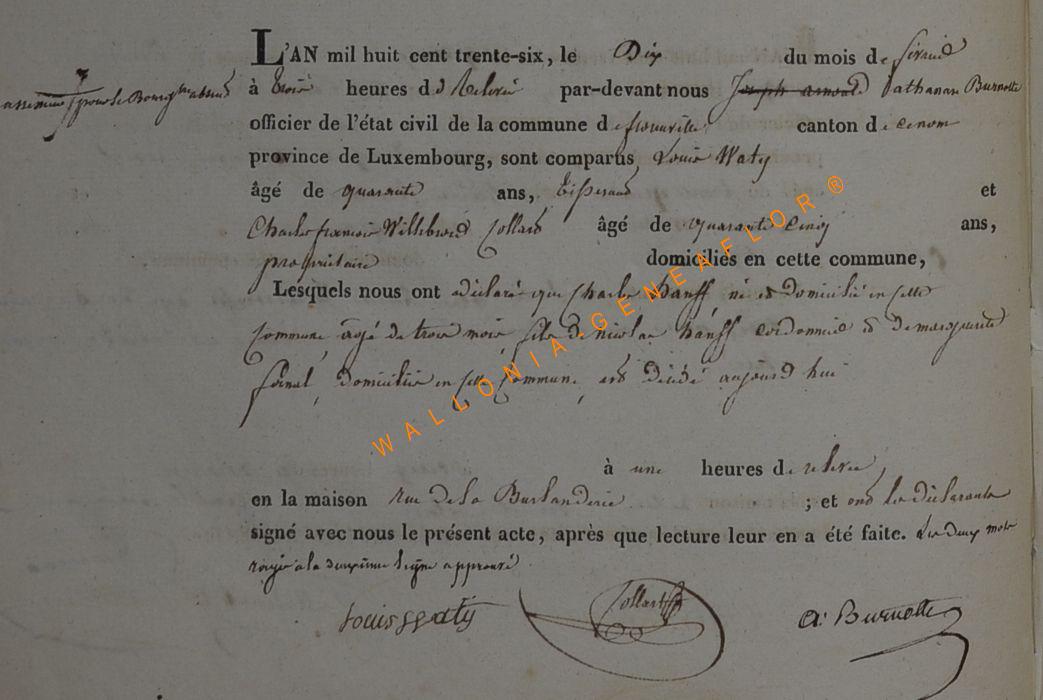 L'AN mil huit cent trente-six, le Dix du mois de
à trois heures de Relevée par-devant nous Joseph arnould Burnotte
assesseur pour le Bourgtre absent
officier de l'état civil de la commune de canton de
province de Luxembourg, sont comparus Louis Waty
âgé de quarante ans, tisserand et
Charles françois Willebrord Collard âgé de quarante cinq ans,
propriétaire domiciliés en cette commune,
Lesquels nous ont déclaré que Charles hanff né et domicilié en cette
commune âgé de trois mois fils de nicolas hanff cordonnier et de marguerite
domiciliés en cette commune, est décédé aujourd hui
à une heures de relevée,
en la maison rue de la ; et ont les déclarants
signé avec nous le présent acte, après que lecture leur en a été faite. Les deux mots
rayés a la deuxième ligne approuvé
louis watÿ
Collart
a. Burnotte
WALLONIA-GENEAFLOR®